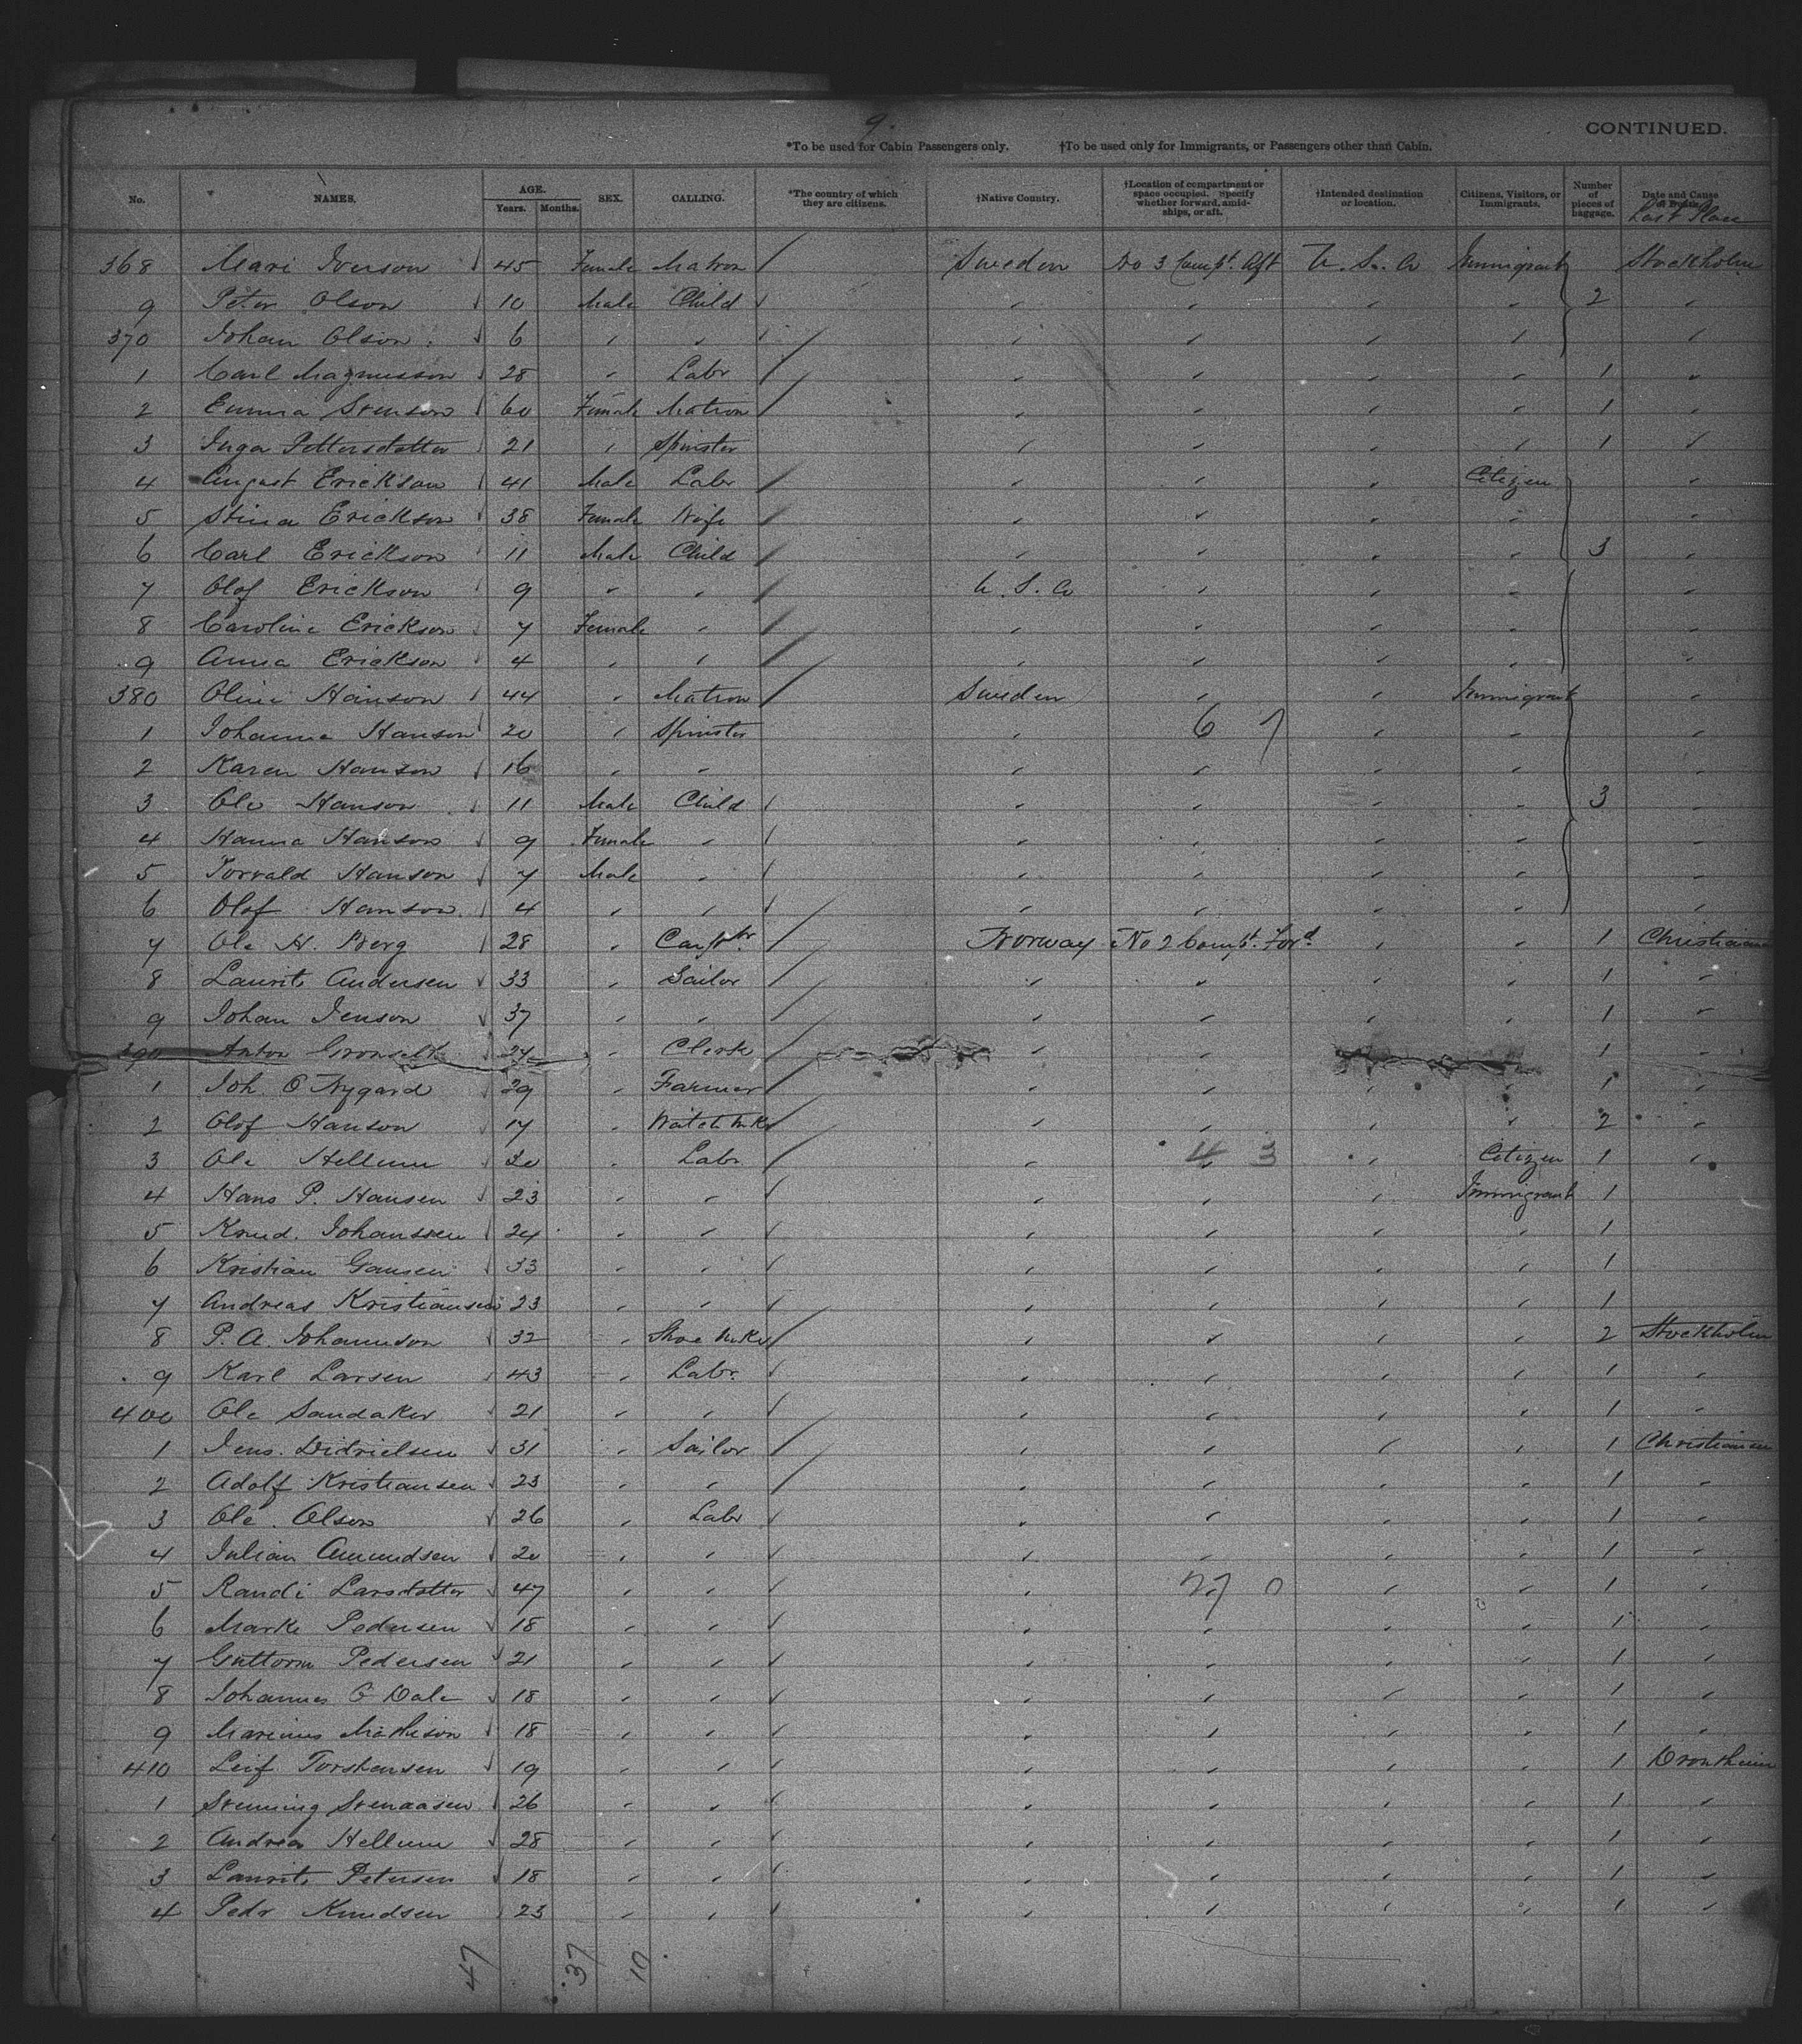 9.
CONTINUED.
*To be used for Cabin Passengers only. †To be used only for Immigrants, or Passengers other than Cabin.
No. NAMES. AGE. Years. Months. SEX. CALLING. *The country of which they are citizens. †Native Country. †Location of compartment or space occupied. Specify whether forward, amidships, or aft. †Intended destination or location. Citizens, Visitors, or Immigrants. Number of pieces of baggage. Date and Cause Last Place
368 Mari Iverson 45 Female Matron Sweden No 3 Compt. Aft U. S. A Immigrant Stockholm
9 Peter Olson 10 Male Child " " " " 2 "
370 Johan Olson 6 " " " " " " "
1 Carl Magnusson 28 " Labr " " " " 1 "
2 Emma Svenson 60 Female Matron " " " " 1 "
3 Inga Pettersdotter 21 " Spinster " " " " 1 "
4 August Erickson 41 Male Labr " " " Citizen "
5 Stina Erickson 38 Female Wife " " " " "
6 Carl Erickson 11 Male Child " " " " 3 "
7 Olof Erickson 9 " " U. S. A " " " "
8 Caroline Erickson 7 Female " " " " " "
9 Anna Erickson 4 " " " " " " "
380 Oline Hanson 44 " Matron Sweden " " Immigrant "
1 Johanna Hanson 20 " Spinster " 6 7 " " "
2 Karen Hanson 16 " " " " " " "
3 Ole Hanson 11 Male Child " " " " 3 "
4 Hanna Hanson 9 Female " " " " " "
5 Torvald Hanson 7 Male " " " " " "
6 Olof Hanson 4 " " " " " " "
7 Ole H. Berg 28 " Carptr Norway No 2 Compt. Ford " " 1 Christiania
8 Laurits Andersen 33 " Sailor " " " " 1 "
9 Johan Jenson 37 " " " " " " 1 "
390 Anton 24 " Clerk " " " 1 "
1 Joh. O Nygard 29 " Farmer " " " " 1 "
2 Olof Hanson 17 " Watch Mkr " " " " 2 "
3 Ole Hellum 20 " Labr " 4 3 " Citizen 1 "
4 Hans P. Hansen 23 " " " " " Immigrant 1
5 Knud. Johanssen 24 " " " " " " 1
6 Kristian Gansen 33 " " " " " " 1
7 Andreas Kristiansen 23 " " " " " " 1
8 P. A. Johannson 32 " Shoe Mkr " " " " 2 Stockholm
9 Karl Larsen 43 " Labr. " " " " 1 "
400 Ole Sandaker 21 " " " " " " 1 "
1 Jens. Didrielsen 31 " Sailor " " " " 1 Christiansen
2 Adolf Kristiansen 23 " " " " " " 1 "
3 Ole. Olson 26 " Labr " " " " 1 "
4 Julian Amundsen 20 " " " " " " 1 "
5 Randi Larsdotter 47 " " " 27 0 " " 1 "
6 Marke Pedersen 18 " " " " " " 1 "
7 Guttorm Pedersen 21 " " " " " " 1 "
8 Johannes O Dale 18 " " " " " " 1 "
9 Marinus Mathison 18 " " " " " " 1 "
410 Leif Torskensen 19 " " " " " " 1 Drontheim
1 Svenning Svenaasen 26 " " " " " " 1 "
2 Andrea Hellum 28 " " " " " " 1 "
3 Laurits Petersen 18 " " " " " " 1 "
4 Pedr Knudsen 23 " " " " " " 1 "
47 37 10